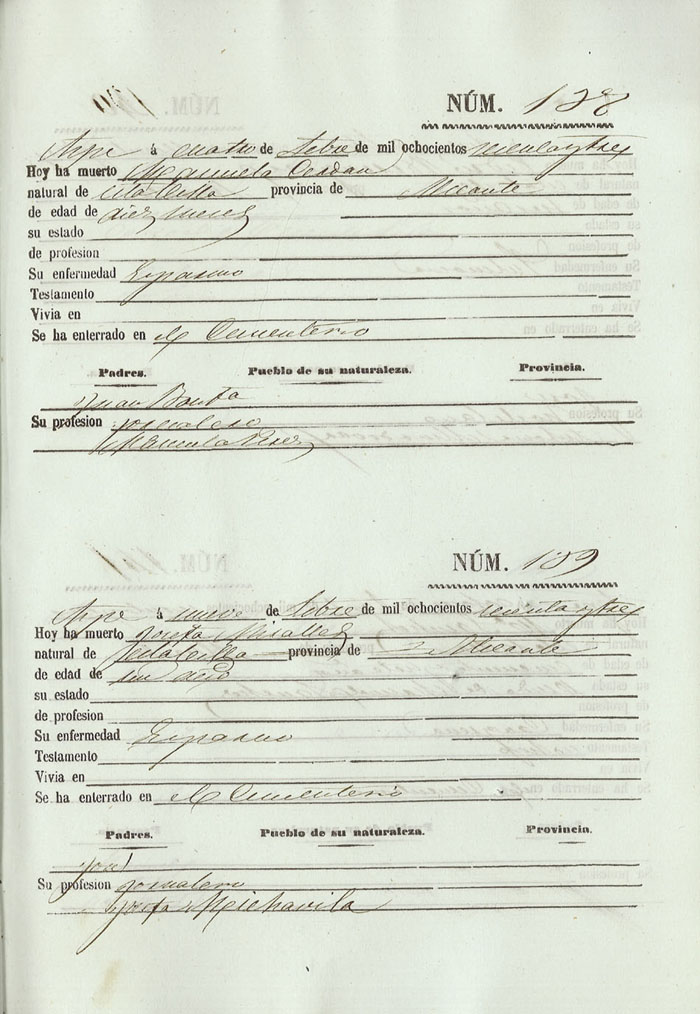 NÚM. 138
Aspe á cuatro de Febre de mil ochocientos
Hoy ha muerto Manuela Cerdan
natural de esta Villa provincia de Alicante
de edad de diez meses
su estado
de profesion
Su enfermedad Espasmo
Testamento
Vivia en
Se ha enterrado en el Cementerio
Padres. Pueblo de su naturaleza. Provincia.
Juan Bauta
Su profesion jornalero
Manuela
NÚM. 139
Aspe á nueve de Febre de mil ochocientos
Hoy ha muerto Josefa Miralles
natural de esta Villa provincia de Alicante
de edad de un año
su estado
de profesion
Su enfermedad Espasmo
Testamento
Vivia en
Se ha enterrado en el Cementerio
Padres. Pueblo de su naturaleza. Provincia.
José
Su profesion jornalero
Josefa Meichavila